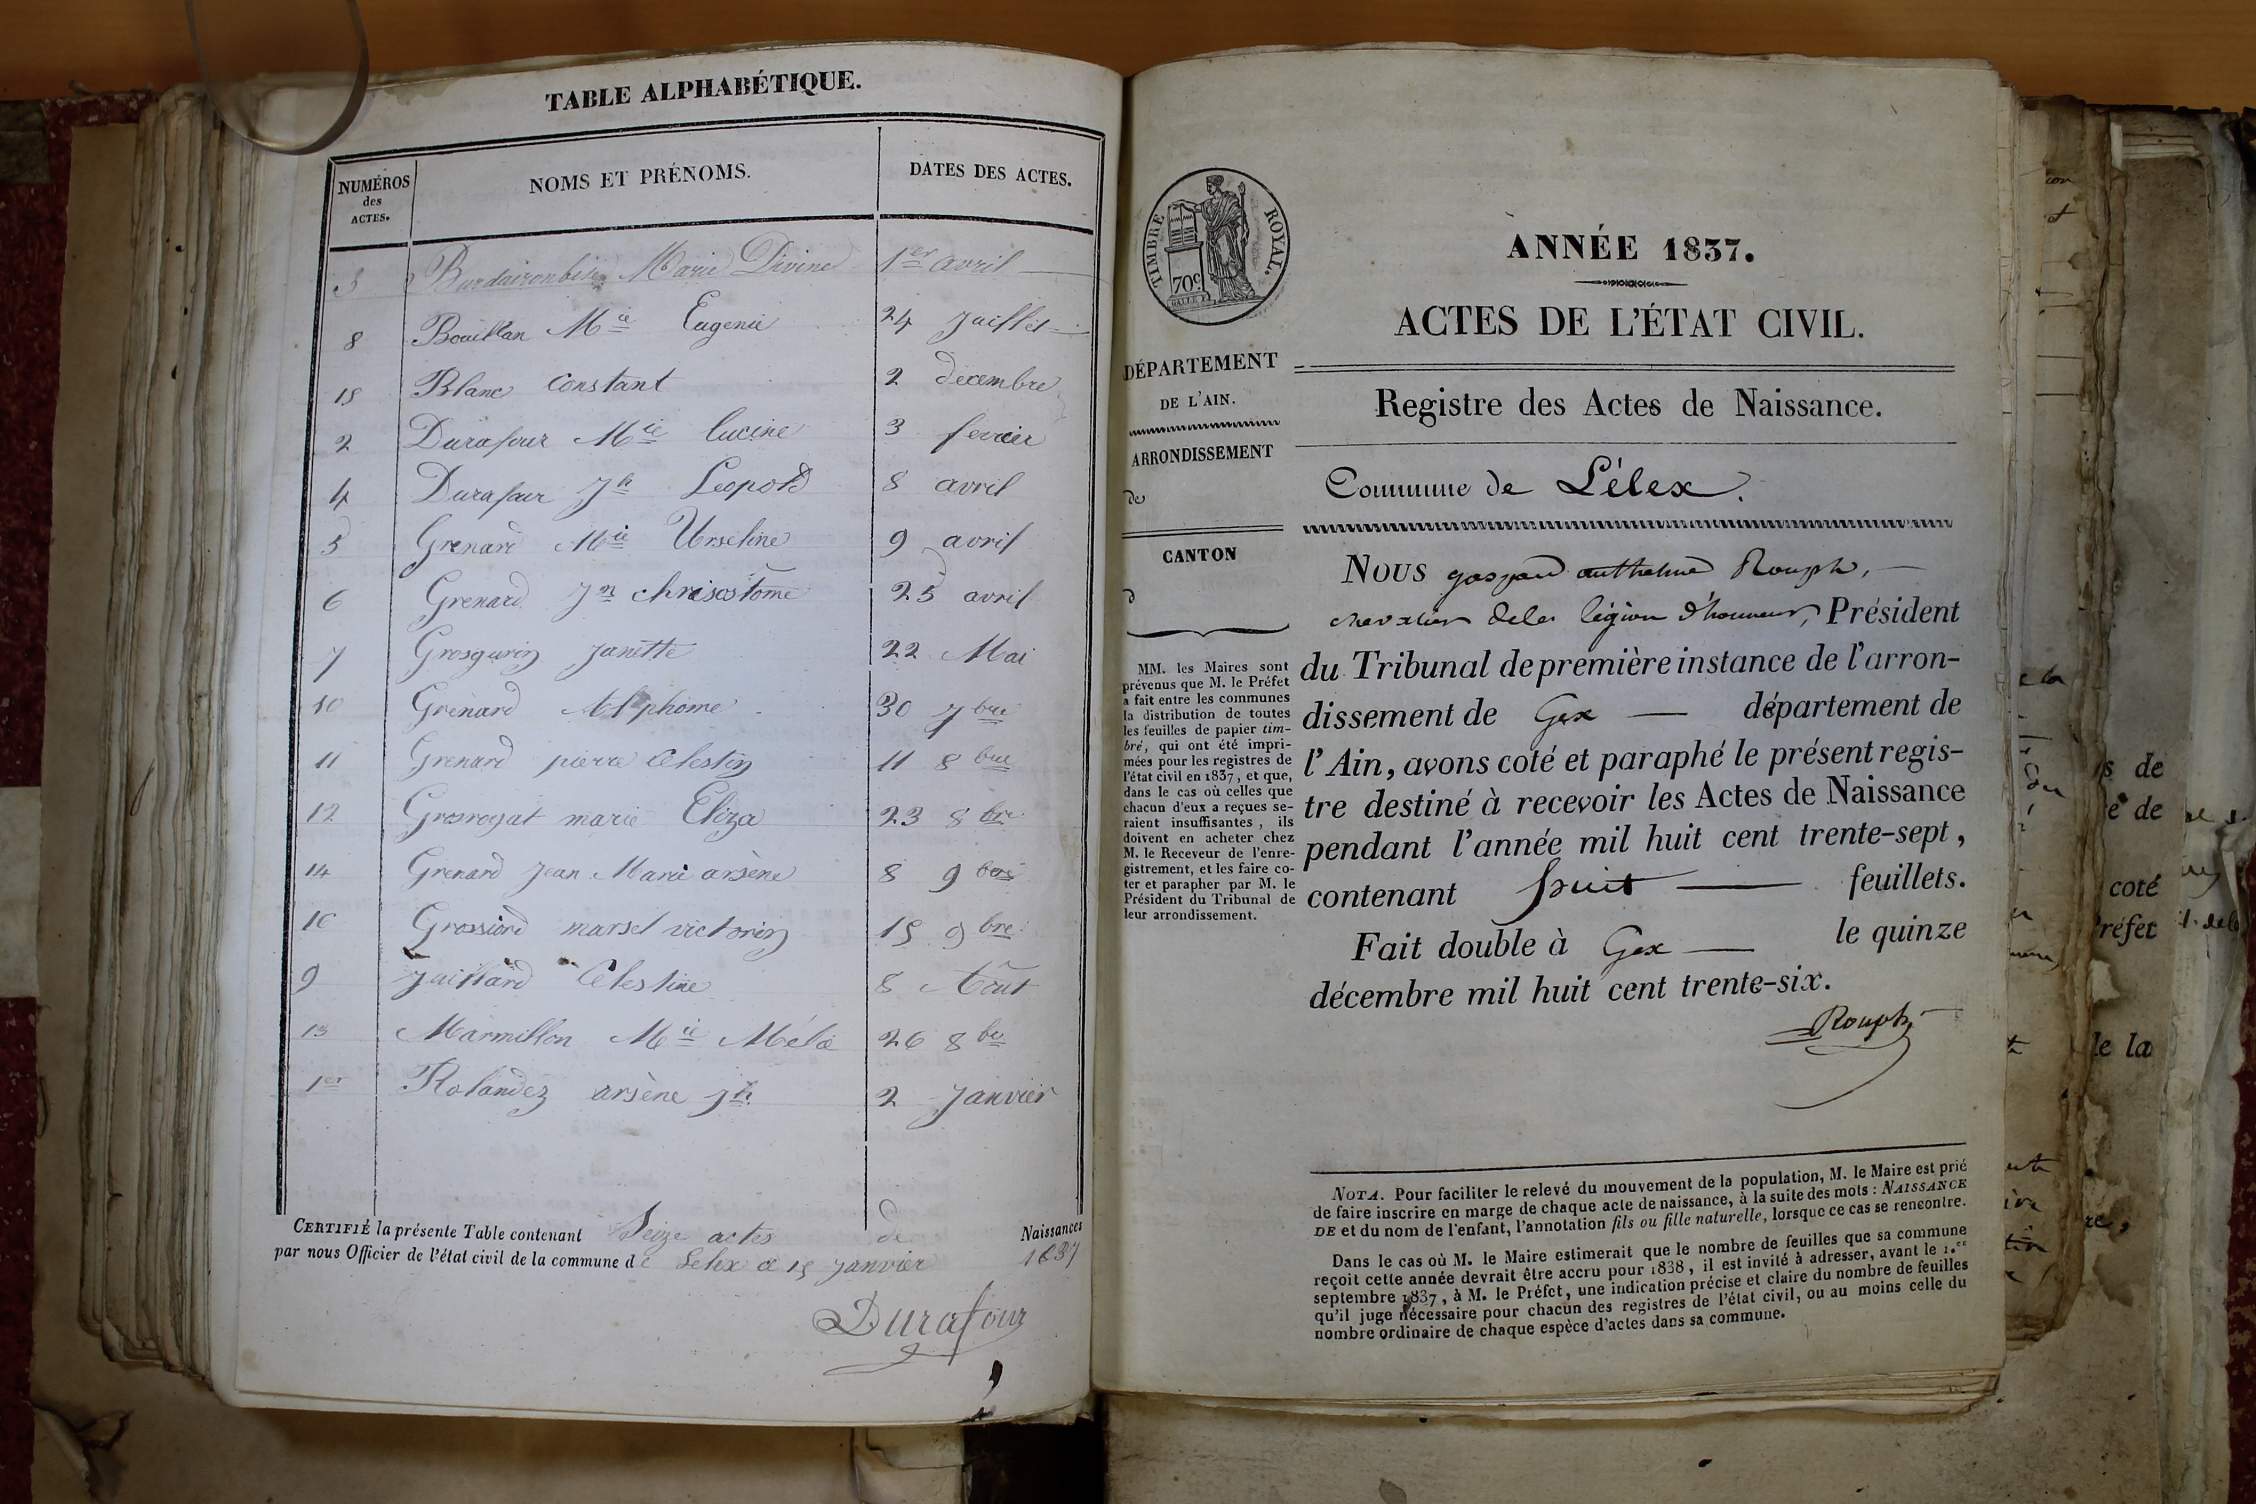 TABLE ALPHABÉTIQUE.
NUMÉROS des ACTES. NOMS ET PRÉNOMS. DATES DES ACTES.
3 Marie Divine 1er avril
8 Bouillan Mie Eugenie 24 Juillet
15 Blanc Constant 2 décembre
2 Durafour Mie Lucine 3 fevrier
4 Durafour Jh Leopold 8 avril
5 Grenard Mie Urseline 9 avril
6 Grenard Jn chrisostôme 25 avril
7 Grosgurin Janette 22 Mai
10 Grenard Alphonse 30 7bre
11 Grenard pierre Celestin 11 8bre
12 Grosrogat marie Eliza 23 8bre
14 Grenard Jean Marie arsène 8 9bre
16 Grossiord marsel victorin 15 9bre
9 Jaillard Célestine 8 Aout
13 Marmillon Mie Méla 26 8bre
1er Rolandez arsène Jh 2 Janvier
CERTIFIÉ la présente Table contenant Seize actes de Naissances
par nous Officier de l'état civil de la commune de Lelex ce 15 Janvier 1837
Durafour
TIMBRE ROYAL.
70c.
ANNÉE 1837.
ACTES DE L'ÉTAT CIVIL.
DÉPARTEMENT
DE L'AIN.
ARRONDISSEMENT
de
CANTON
d
MM. les Maires sont
prévenus que M. le Préfet
a fait entre les communes
la distribution de toutes
les feuilles de papier tim-
bré, qui ont été impri-
mées pour les registres de
l'état civil en 1837, et que,
dans le cas où celles que
chacun d'eux a reçues se-
raient insuffisantes, ils
doivent en acheter chez
M. le Receveur de l'enre-
gistrement, et les faire co-
ter et parapher par M. le
Président du Tribunal de
leur arrondissement.
Registre des Actes de Naissance.
Commune de Lélex.
NOUS gaspard anthelme Rouph,
chevalier de la légion d'honneur, Président
du Tribunal de première instance de l'arron-
dissement de Gex département de
l'Ain, avons coté et paraphé le présent regis-
tre destiné à recevoir les Actes de Naissance
pendant l'année mil huit cent trente-sept,
contenant huit feuillets.
Fait double à Gex le quinze
décembre mil huit cent trente-six.
Rouph
NOTA. Pour faciliter le relevé du mouvement de la population, M. le Maire est prié
de faire inscrire en marge de chaque acte de naissance, à la suite des mots : NAISSANCE
DE et du nom de l'enfant, l'annotation fils ou fille naturelle, lorsque ce cas se rencontre.
Dans le cas où M. le Maire estimerait que le nombre de feuilles que sa commune
reçoit cette année devrait être accru pour 1838, il est invité à adresser, avant le 1.er
septembre 1837, à M. le Préfet, une indication précise et claire du nombre de feuilles
qu'il juge nécessaire pour chacun des registres de l'état civil, ou au moins celle du
nombre ordinaire de chaque espèce d'actes dans sa commune.